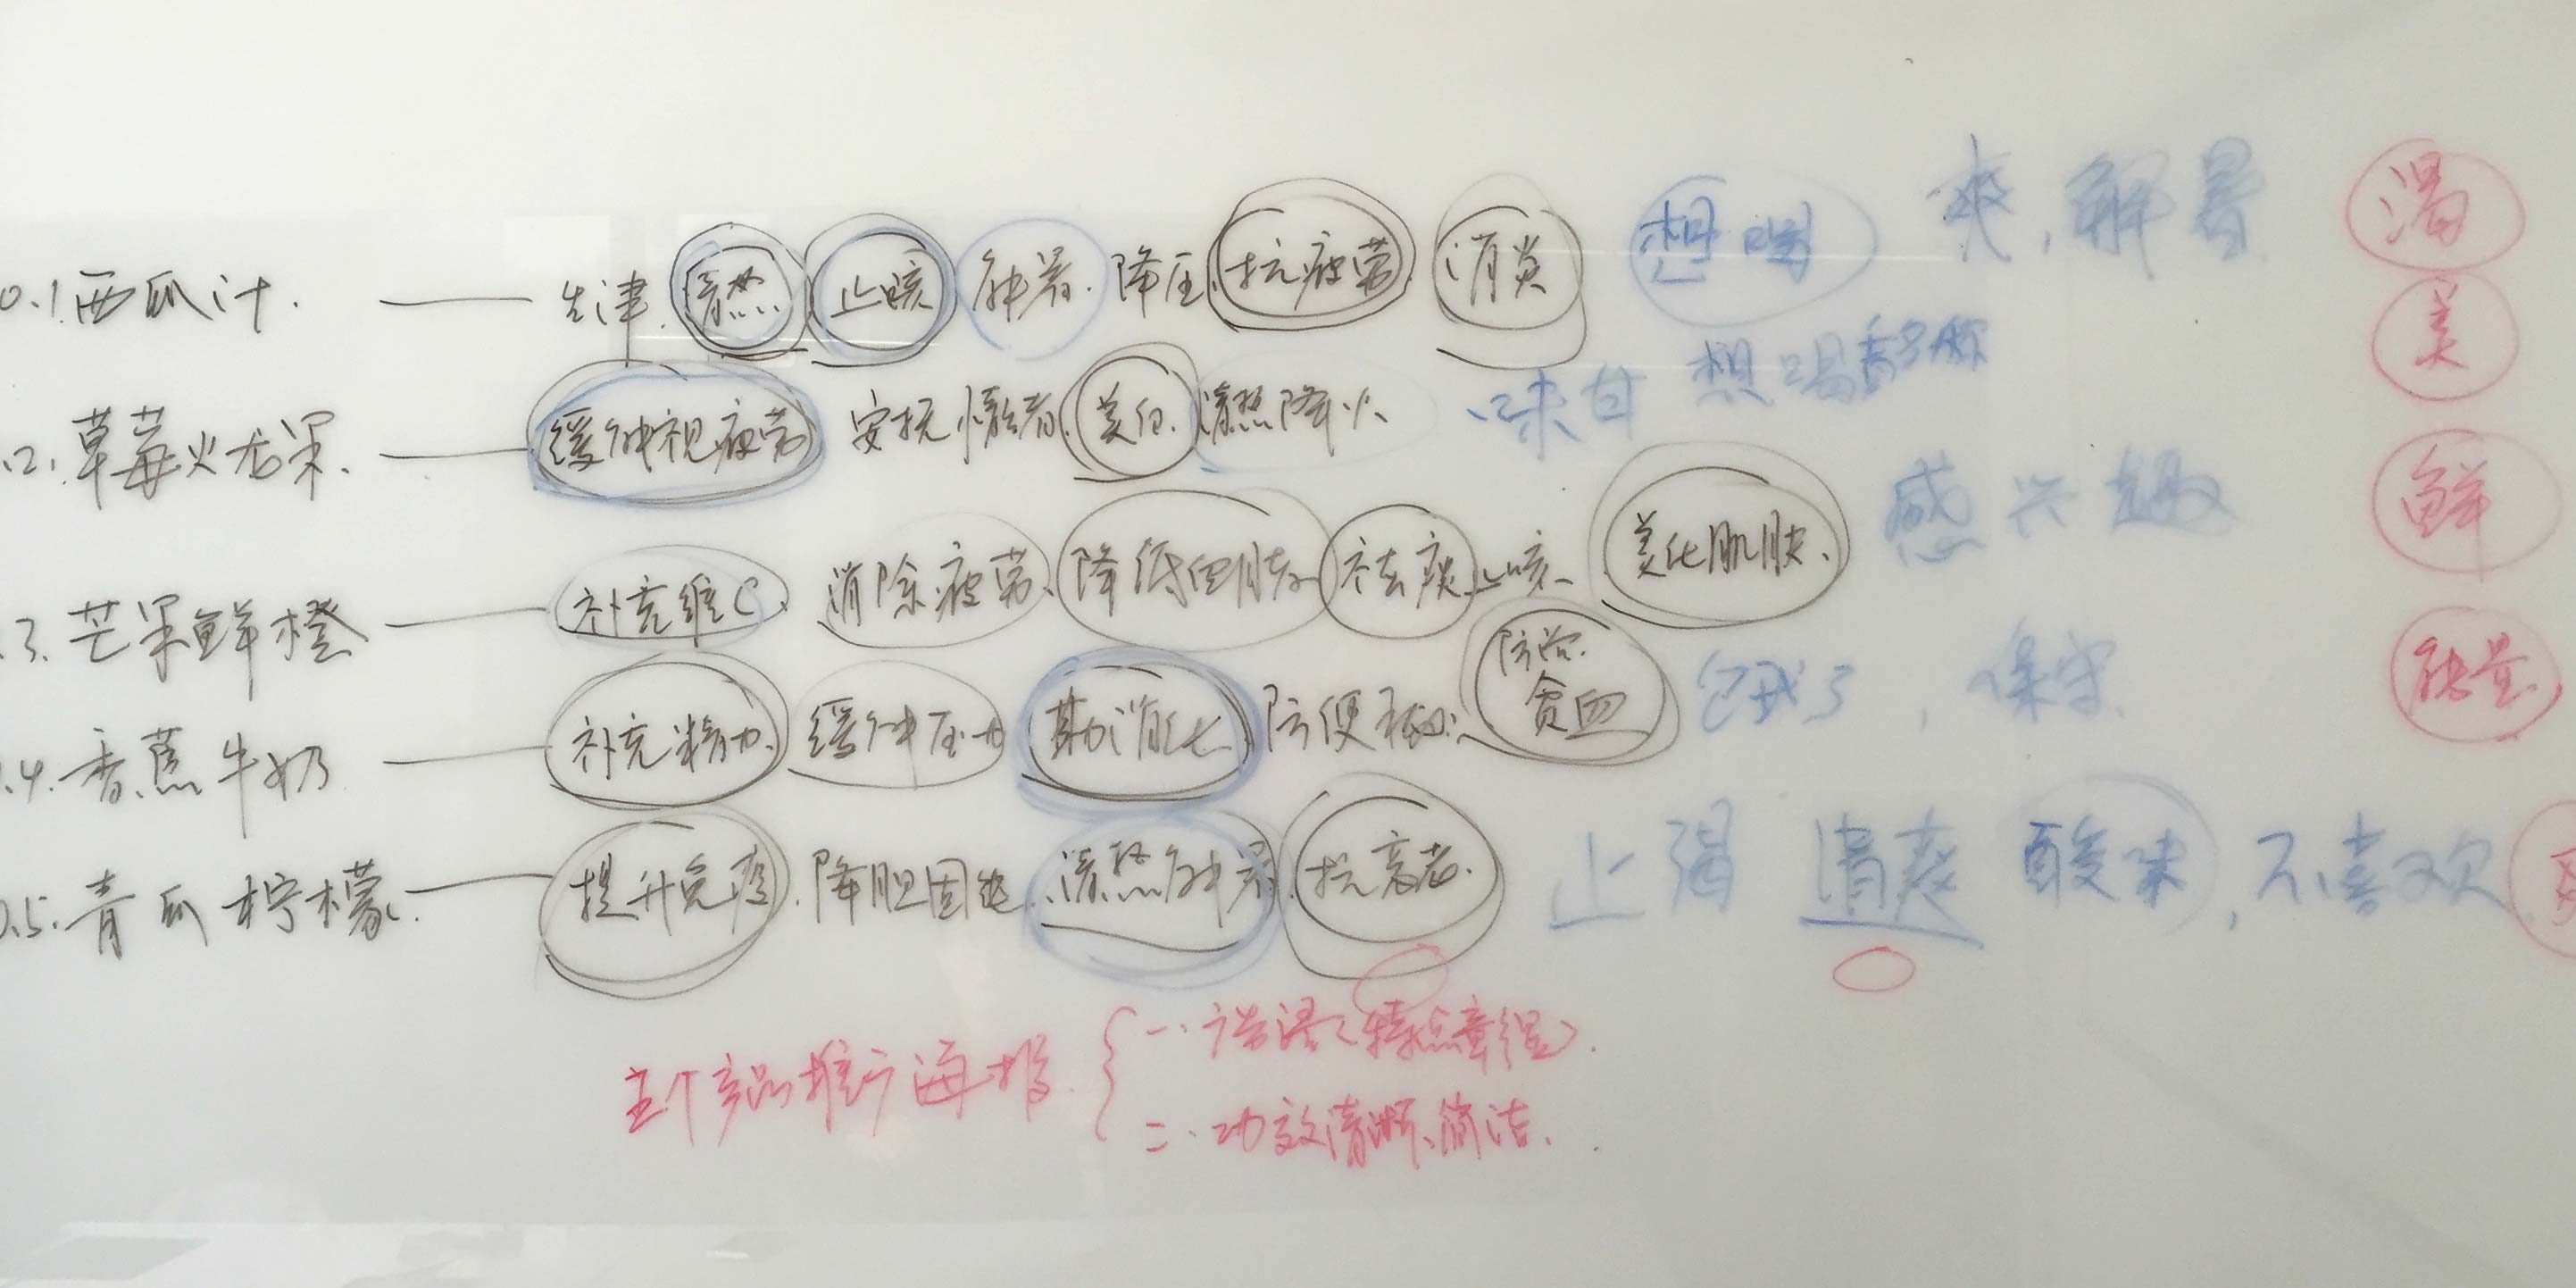 0.1.西瓜汁. —— 生津.清热 止咳 解暑.降压.抗疲劳 消炎 想喝 爽,解暑 渴
美
.2.草莓火龙果. —— 缓解视疲劳 安抚情绪.美白.清热降火 味甘 想喝
感兴趣 鲜
.3.芒果鲜橙 —— 补充维C、消除疲劳、降低血脂、祛痰止咳、美化肌肤、
.4.香蕉牛奶 —— 补充精力、缓解压力 助消化 防便秘、防治贫血 饿了,保守 能量
0.5.青瓜柠檬. —— 提升免疫.降胆固醇.清热解暑.抗衰老. 止渴 清爽 酸味,不喜欢
五个产品推广海报. { 一.广告语(特点、).
二.功效清晰、简洁.